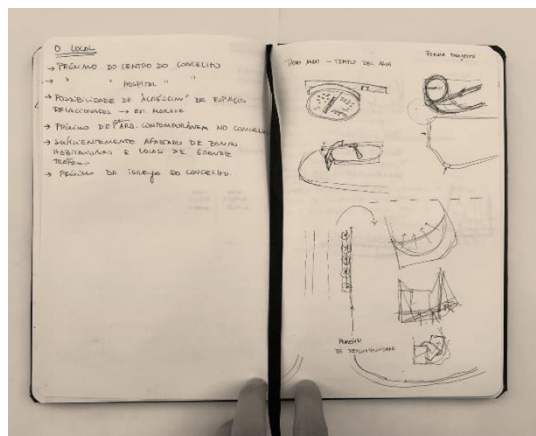 O LOCAL
→ PRÓXIMO DO CENTRO DO CONCELHO
→ " " HOSPITAL " "
→ POSSIBILIDADE DE "ACRÉSCIMO" DE ESPAÇOS
RELACIONADOS →
→ PRÓXIMO DE ARQ. CONTEMPORÂNEA NO CONCELHO
→ SUFICIENTEMENTE AFASTADO DE ZONAS
HABITACIONAIS E LOCAIS DE GRANDE
TRÁFEGO
→ PRÓXIMO DA IGREJA DO CONCELHO.
TADAO ANDO - TEMPLO DEL AGUA
FORMA PROJETO
DE DESCONTINUIDADE